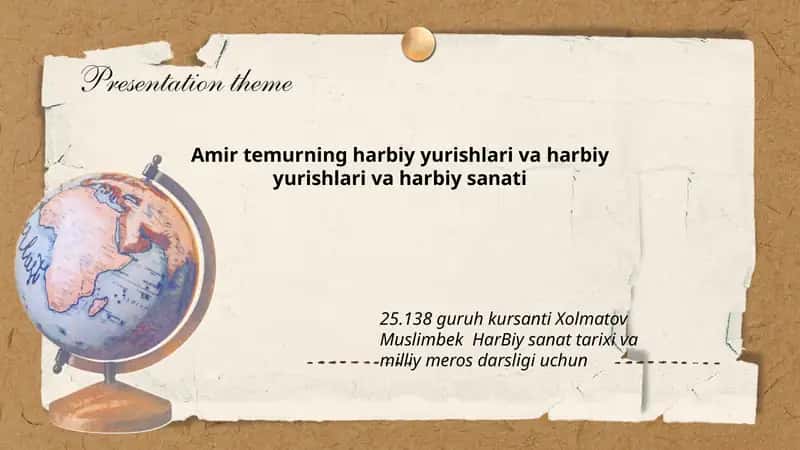 Presentation theme
Amir temurning harbiy yurishlari va harbiy
yurishlari va harbiy sanati
25.138 guruh kursanti Xolmatov
Muslimbek HarBiy sanat tarixi va
milliy meros darsligi uchun